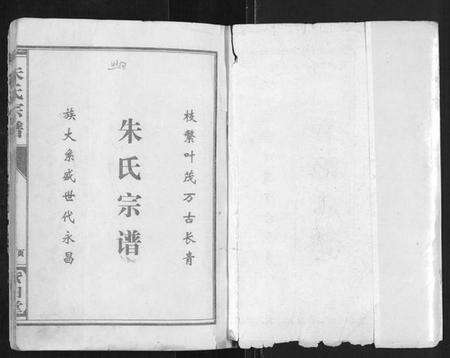 枝繁叶茂万古长青
朱氏宗谱
族大系盛世代永昌
朱氏宗谱
页